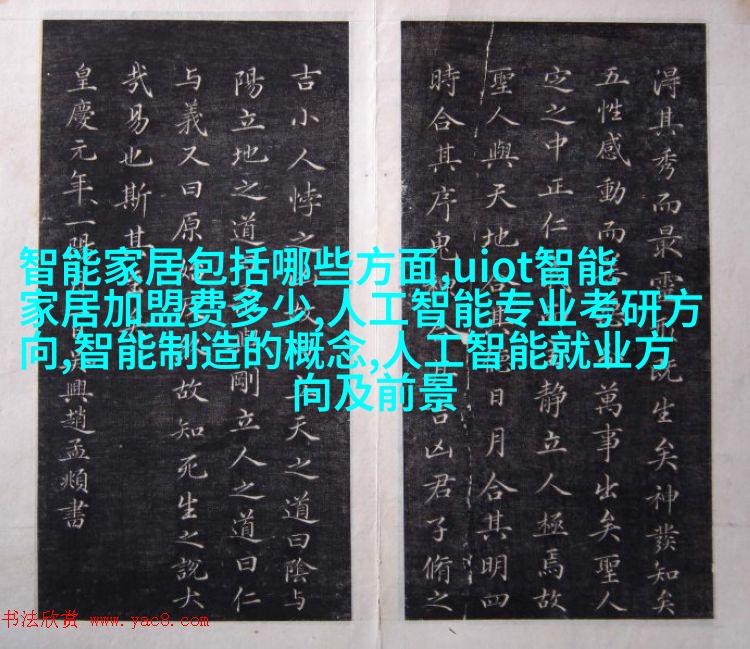 得其秀而最靈 既生矣神發知矣
五性感動而 萬事出矣聖人
定之中正仁 靜立人極焉故
聖人與天地合其 日月合其明四
時合其序鬼 吉凶君子脩之
吉小人悖之 故 天之道曰陰与
陽立地之道 剛立人之道曰仁
与義又曰原 故知死生之說大
哉易也斯其
皇慶元年一陽 興趙孟頫書
智能家居包括哪些方面,uiot智能
家居加盟费多少,人工智能专业考研方
向,智能制造的概念,人工智能就业方
向及前景
书法欣赏 www.yac8.com